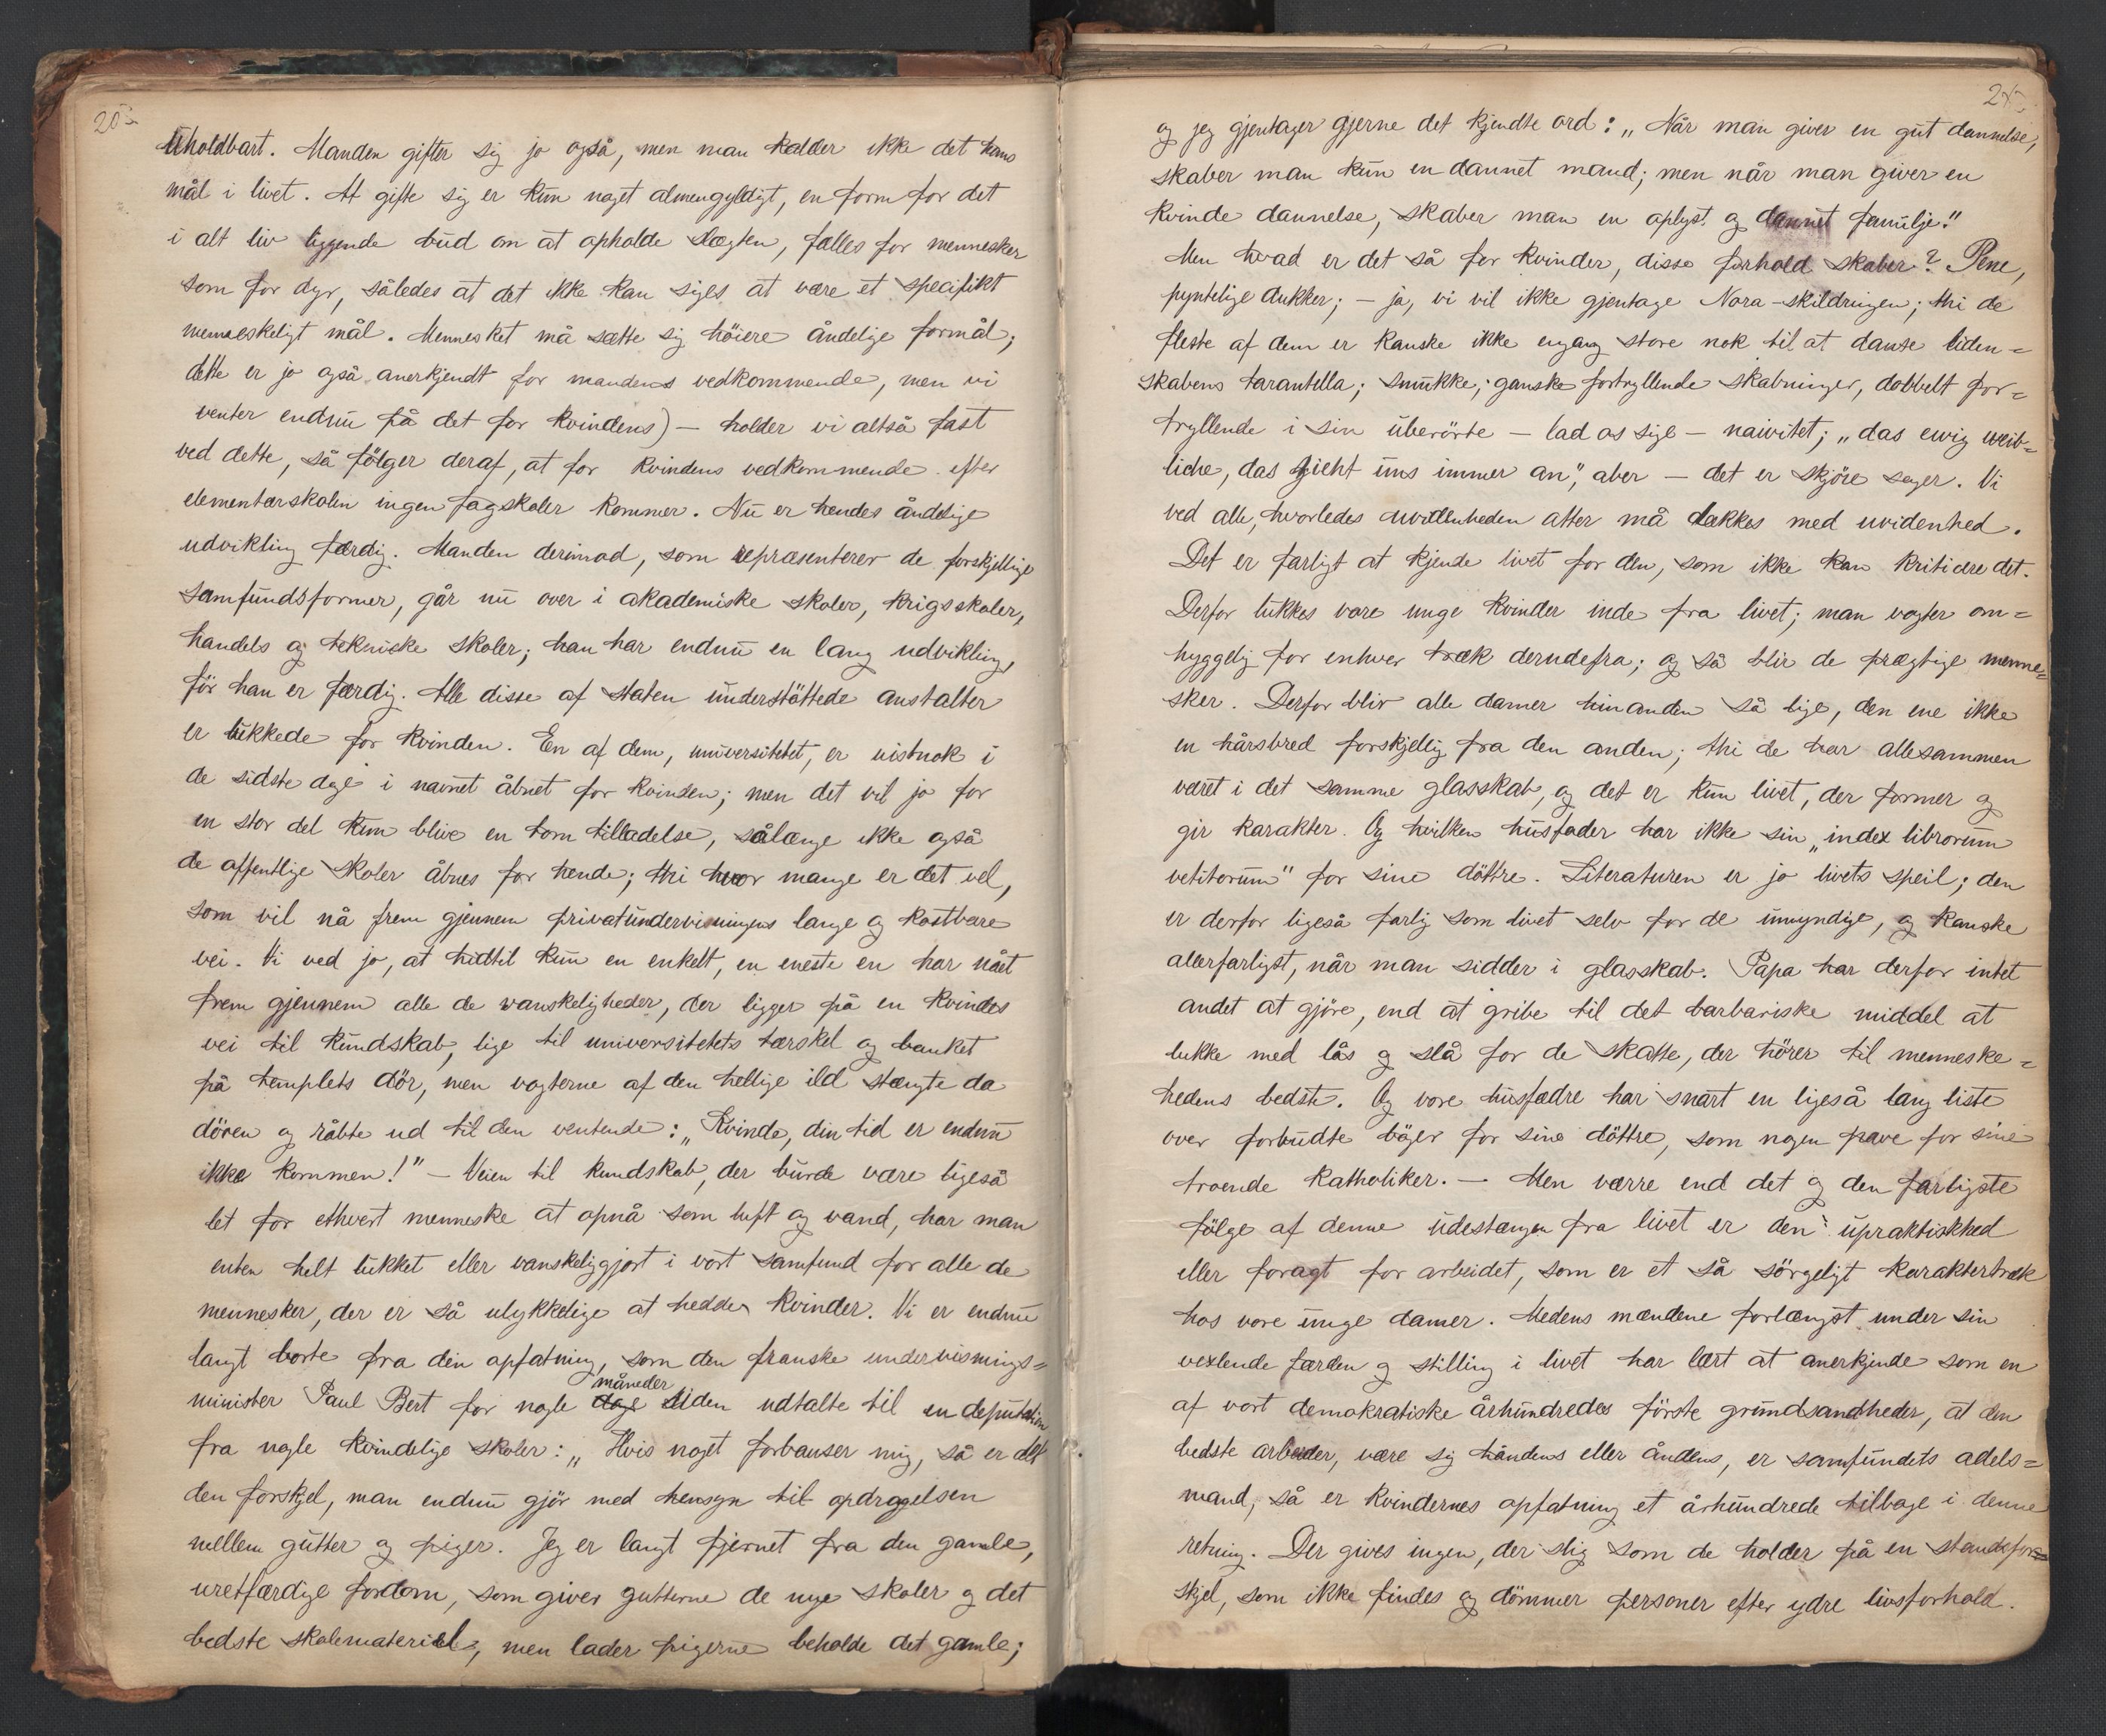 uholdbart. Manden gifter sig jo også, men man kalder ikke det hans
mål i livet. At gifte sig er kun noget almengyldigt, en form for det
i alt liv liggende bud om at opholde slægten, fælles for mennesker
som for dyr, således at det ikke kan siges at være et specifikt
menneskeligt mål. Mennesket må sætte sig höiere åndelige formål;
dette er jo også anerkjendt for mandens vedkommende, men vi
venter endnu på det for kvindens) — holder vi altså fast
ved dette, så fölger deraf, at for kvindens vedkommende efter
elementærskolen ingen fagskoler kommer. Nu er hendes åndelige
udvikling færdig. Manden derimod, som repræsenterer de forskjellige
samfundsformer, går nu over i akademiske skoler, krigsskoler,
handels og tekniske skoler; han har endnu en lang udvikling,
för han er færdig. Alle disse af staten understöttede anstalter
er lukkede for kvinden. En af dem, universitetet, er vistnok i
de sidste dage i navnet åbnet for kvinden; men det vil jo for
en stor del kun blive en tom tilladelse, sålænge ikke også
de offentlige skoler åbnes for hende; thi hvor mange er det vel,
som vil nå frem gjennem privatundervisningens lange og kostbare
vei. Vi ved jo, at hidtil kun en enkelt, en eneste en har nået
frem gjennem alle de vanskeligheder, der ligger på en kvindes
vei til kundskab, lige til universitetets tærskel og banket
på templets dör, men vogterne af den hellige ild stængte da
dören og råbte ud til den ventende: „Kvinde, din tid er endnu
ikke kommen!" — Veien til kundskab, der burde være ligeså
let for ethvert menneske at opnå som luft og vand, har man
enten helt lukket eller vanskeliggjort i vort samfund for alle de
mennesker, der er så ulykkelige at hedde kvinder. Vi er endnu
langt borte fra den opfatning, som den franske undervisnings=
minister Paul Bert for nogle dage måneder siden udtalte til en deputation
fra nogle kvindelige skoler: „Hvis noget forbauser mig, så er det
den forskjel, man endnu gjör med hensyn til opdragelsen
mellem gutter og piger. Jeg er langt fjernet fra den gamle,
uretfærdige fordom, som giver gutterne de nye skoler og det
bedste skolemateriel, men lader pigerne beholde det gamle;
og jeg gjentager gjerne det kjendte ord: „Når man giver en gut dannelse,
skaber man kun en dannet mand; men når man giver en
kvinde dannelse, skaber man en oplyst og dannet familje."
Men hvad er det så for kvinder, disse forhold skaber? Pene,
pyntelige dukker; — ja, vi vil ikke gjentage Nora-skildringen; thi de
fleste af dem er kanske ikke engang store nok til at danse liden=
skabens tarantella; smukke, ganske fortryllende skabninger, dobbelt for=
tryllende i sin uberörte — lad os sige — naivitet; „das ewig weib=
liche, das zieht uns immer an", aber — det er skjöre sager. Vi
ved alle, hvorledes uvidenheden atter må dækkes med uvidenhed.
Det er farligt at kjende livet for den, som ikke kan kritisere det.
Derfor lukkes vore unge kvinder inde fra livet; man vogter om=
hyggelig for enhver træk derudefra; og så blir de prægtige menne=
sker. Derfor blir alle damer hinanden så lige, den ene ikke
en hårsbred forskjellig fra den anden; thi de har allesammen
været i det samme glasskab, og det er kun livet, der former og
gir karakter. Og hvilken husfader har ikke sin „index librorum
vetitorum" for sine döttre. Literaturen er jo livets speil; den
er derfor ligeså farlig som livet selv for de umyndige, og kanske
allerfarligst, når man sidder i glasskab. Papa har derfor intet
andet at gjöre, end at gribe til det barbariske middel at
lukke med lås og slå for de skatte, der hörer til menneske=
hedens bedste. Og vore husfædre har snart en ligeså lang liste
over forbudte böger for sine döttre, som nogen pave for sine
troende katholiker. — Men værre end det og den farligste
fölge af denne udestængen fra livet er den upraktiskhed
eller foragt for arbeidet, som er et så sörgeligt karaktertræk
hos vore unge damer. Medens mændene forlængst under sin
vexlende færden og stilling i livet har lært at anerkjende som en
af vort demokratiske århundredes förste grundsandheder, at den
bedste arbeider, være sig håndens eller åndens, er samfundets adels=
mand, så er kvindernes opfatning et århundrede tilbage i denne
retning. Der gives ingen, der slig som de holder på en standsfor=
skjel, som ikke findes og dömmer personer efter ydre livsforhold.